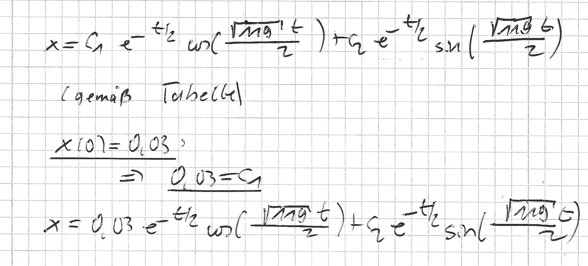 x = C₁ e^{-t/2} cos(√119 t / 2) + C₂ e^{-t/2} sin(√119 t / 2)
(gemäß Tabelle)
x(0) = 0,03:
⇒ 0,03 = C₁
x = 0,03 e^{-t/2} cos(√119 t / 2) + C₂ e^{-t/2} sin(√119 t / 2)